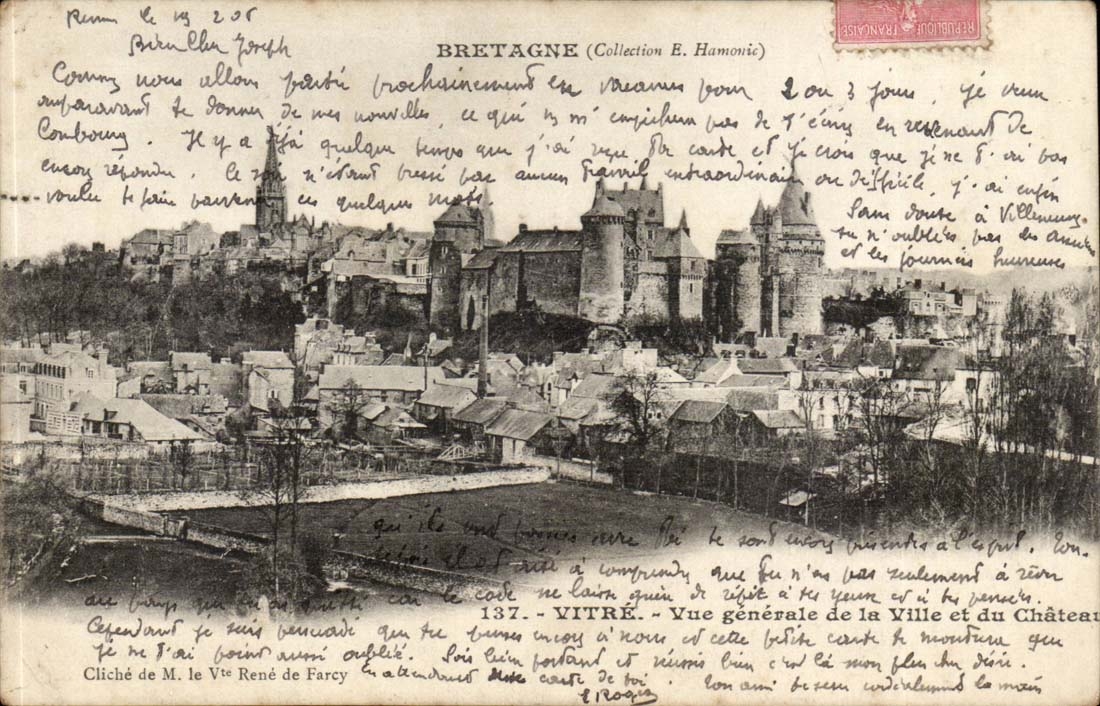 Rennes le 19 2 06
Bien cher Joseph
BRETAGNE (Collection E. Hamonic)
REPUBLIQUE FRANÇAISE
Comme nous allons partir prochainement en vacances pour 2 ou 3 jours, je veux
auparavant te donner de mes nouvelles, ce qui m'empêchera pas de t'écrire en revenant de
Combourg. Il y a déjà quelque temps que j'ai reçu ta carte et je crois que je ne t'ai pas
encore répondu. Ce n'étant pressé par aucun travail extraordinaire ou difficile, j'ai enfin
voulu te faire parvenir ces quelques mots.
Sans doute à
tu n'oublies pas les années
et les journées heureuses
qu'ils ont te sont encore présentes à l'esprit. Ton
il est aisé à comprendre que tu n'as pas seulement à rêver
au pays que tu as quitté car le code ne laisse guère de répit à tes yeux et à tes pensées.
137. - VITRÉ. - Vue générale de la Ville et du Château
Cependant je suis persuadé que tu penses encore à nous et cette petite carte te montrera que
je ne t'ai point aussi oublié. Sois bien portant et réussis bien c'est là mon plus cher désir.
Cliché de M. le Vte René de Farcy
En attendant une carte de toi. Ton ami te serre cordialement la main
Roger